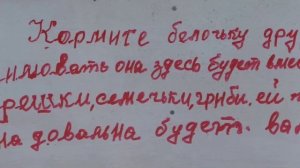 Кормите белочьку дру
зимовать она здесь будет вмес
решки, семечьки, гриби. ей
на довальна будет. ва